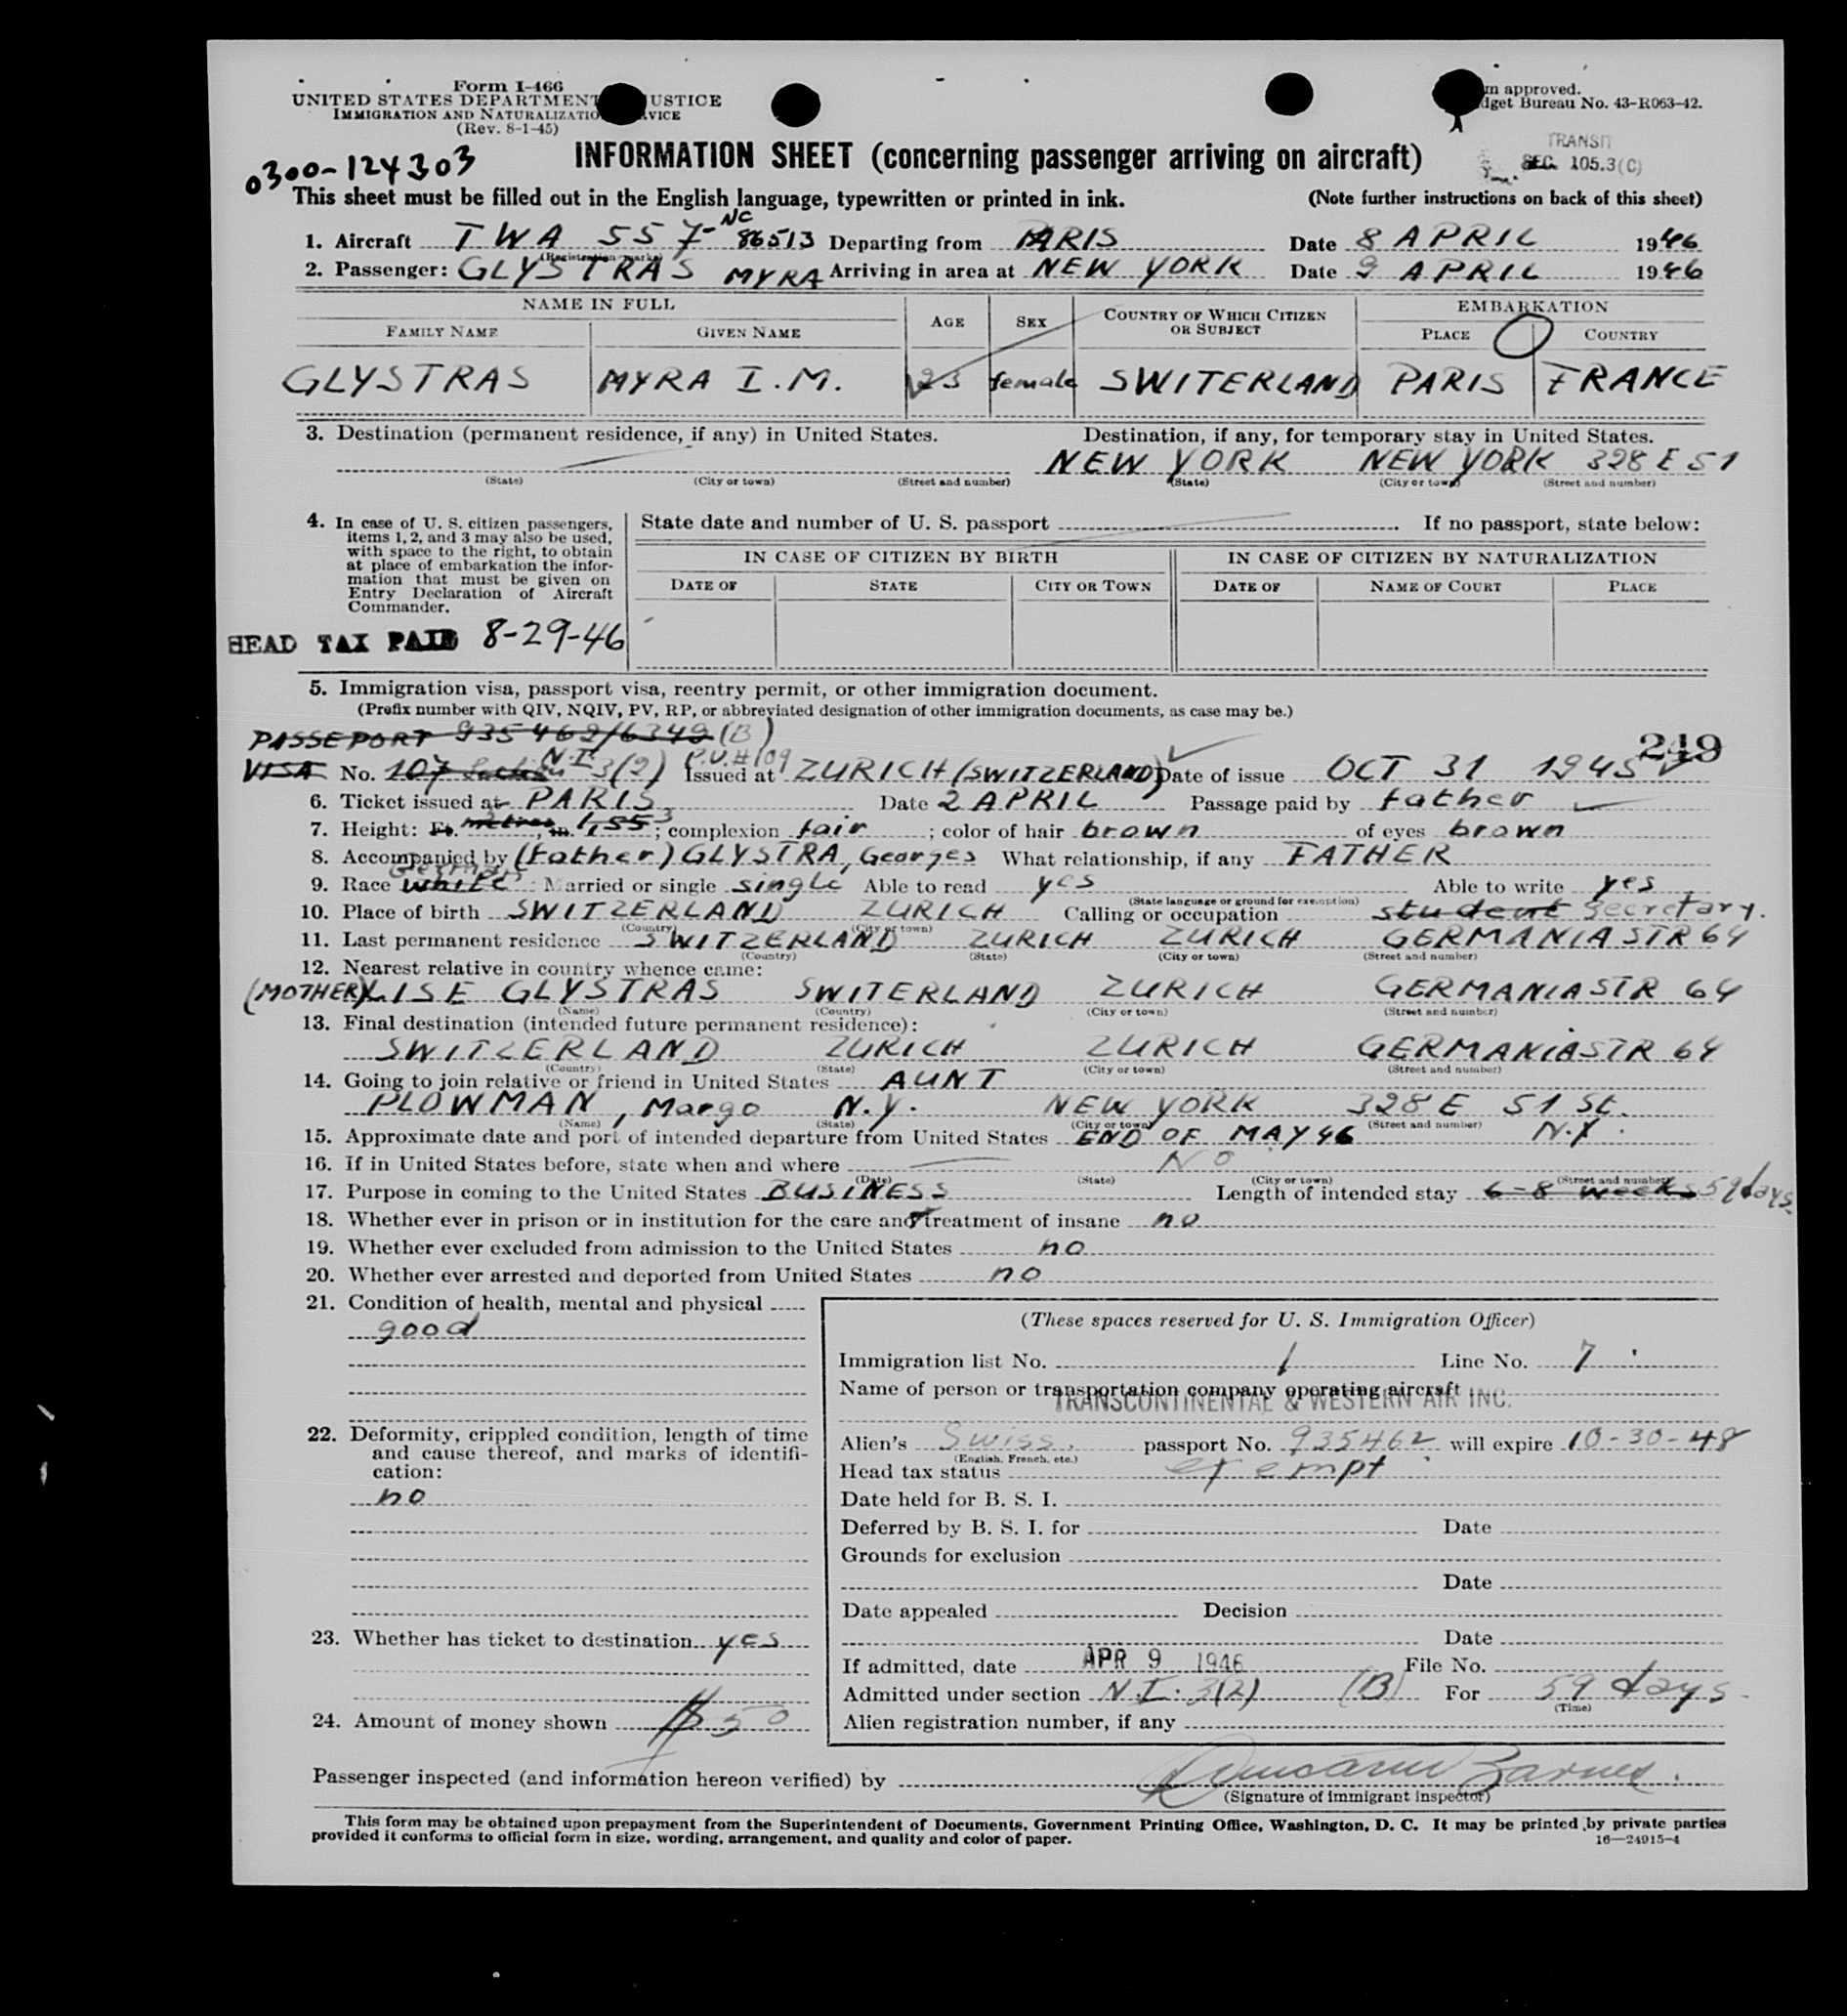 Form I-466
UNITED STATES DEPARTMENT USTICE
IMMIGRATION AND NATURALIZATIO VICE
(Rev. 8-1-45)
m approved.
dget Bureau No. 43-R063-42.
TRANSIT
SEC. 105.3(C)
0300-124303
INFORMATION SHEET (concerning passenger arriving on aircraft)
This sheet must be filled out in the English language, typewritten or printed in ink. (Note further instructions on back of this sheet)
1. Aircraft TWA 557- NC 86513 Departing from PARIS Date 8 APRIL 1946
(Registration marks)
2. Passenger: GLYSTRAS MYRA Arriving in area at NEW YORK Date 9 APRIL 1946
NAME IN FULL AGE SEX COUNTRY OF WHICH CITIZEN OR SUBJECT EMBARKATION
FAMILY NAME GIVEN NAME PLACE COUNTRY
GLYSTRAS MYRA I.M. 23 female SWITERLAND PARIS FRANCE
3. Destination (permanent residence, if any) in United States. Destination, if any, for temporary stay in United States.
NEW YORK NEW YORK 328 E 51
(State) (City or town) (Street and number) (State) (City or town) (Street and number)
4. In case of U. S. citizen passengers, items 1, 2, and 3 may also be used, with space to the right, to obtain at place of embarkation the information that must be given on Entry Declaration of Aircraft Commander.
State date and number of U. S. passport If no passport, state below:
IN CASE OF CITIZEN BY BIRTH IN CASE OF CITIZEN BY NATURALIZATION
DATE OF STATE CITY OR TOWN DATE OF NAME OF COURT PLACE
HEAD TAX PAID 8-29-46
5. Immigration visa, passport visa, reentry permit, or other immigration document.
(Prefix number with QIV, NQIV, PV, RP, or abbreviated designation of other immigration documents, as case may be.)
PASSEPORT 935462/6349 (B) 249
VISA No. 107 N.I. 3(2) P.V.#109 Issued at ZURICH (SWITZERLAND) Date of issue OCT 31 1945
6. Ticket issued at PARIS Date 2 APRIL Passage paid by father
7. Height: Ft. metres, in. 1,55; complexion fair ; color of hair brown of eyes brown
8. Accompanied by (Father) GLYSTRA, Georges What relationship, if any FATHER
9. Race white German Married or single single Able to read yes Able to write yes
(State language or ground for exemption)
10. Place of birth SWITZERLAND ZURICH Calling or occupation student secretary.
(Country) (City or town)
11. Last permanent residence SWITZERLAND ZURICH ZURICH GERMANIASTR 64
(Country) (State) (City or town) (Street and number)
12. Nearest relative in country whence came:
(MOTHER) LISE GLYSTRAS SWITERLAND ZURICH GERMANIASTR 64
(Name) (Country) (City or town) (Street and number)
13. Final destination (intended future permanent residence):
SWITZERLAND ZURICH ZURICH GERMANIASTR 64
(Country) (State) (City or town) (Street and number)
14. Going to join relative or friend in United States AUNT
PLOWMAN, Margo N.Y. NEW YORK 328 E 51 St.
(Name) (State) (City or town) (Street and number)
15. Approximate date and port of intended departure from United States END OF MAY 46 N.Y.
16. If in United States before, state when and where No
(Date) (State) (City or town) (Street and number)
17. Purpose in coming to the United States BUSINESS Length of intended stay 6-8 weeks 59 days.
18. Whether ever in prison or in institution for the care and treatment of insane no
19. Whether ever excluded from admission to the United States no
20. Whether ever arrested and deported from United States no
21. Condition of health, mental and physical
good
22. Deformity, crippled condition, length of time and cause thereof, and marks of identification:
no
23. Whether has ticket to destination yes
24. Amount of money shown $50
(These spaces reserved for U. S. Immigration Officer)
Immigration list No. 1 Line No. 7
Name of person or transportation company operating aircraft
TRANSCONTINENTAL & WESTERN AIR INC.
Alien's Swiss. passport No. 935462 will expire 10-30-48
(English, French, etc.)
Head tax status exempt
Date held for B. S. I.
Deferred by B. S. I. for Date
Grounds for exclusion
Date
Date appealed Decision
Date
If admitted, date APR 9 1946 File No.
Admitted under section N.I. 3(2) (B) For 59 days
(Time)
Alien registration number, if any
Passenger inspected (and information hereon verified) by
(Signature of immigrant inspector)
This form may be obtained upon prepayment from the Superintendent of Documents, Government Printing Office, Washington, D. C. It may be printed by private parties
provided it conforms to official form in size, wording, arrangement, and quality and color of paper. 16—24915-4